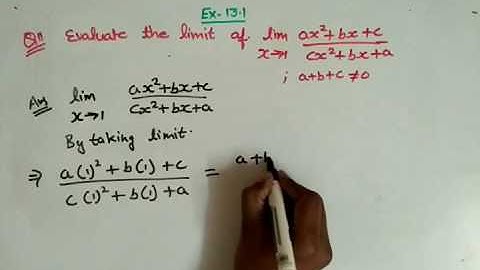 Ex-13.1
Q11 Evaluate the limit of. lim x→1 (ax²+bx+c)/(cx²+bx+a)
; a+b+c ≠0
Ans lim x→1 (ax²+bx+c)/(cx²+bx+a)
By taking limit.
⇒ (a(1)²+b(1)+c)/(c(1)²+b(1)+a) = a+b